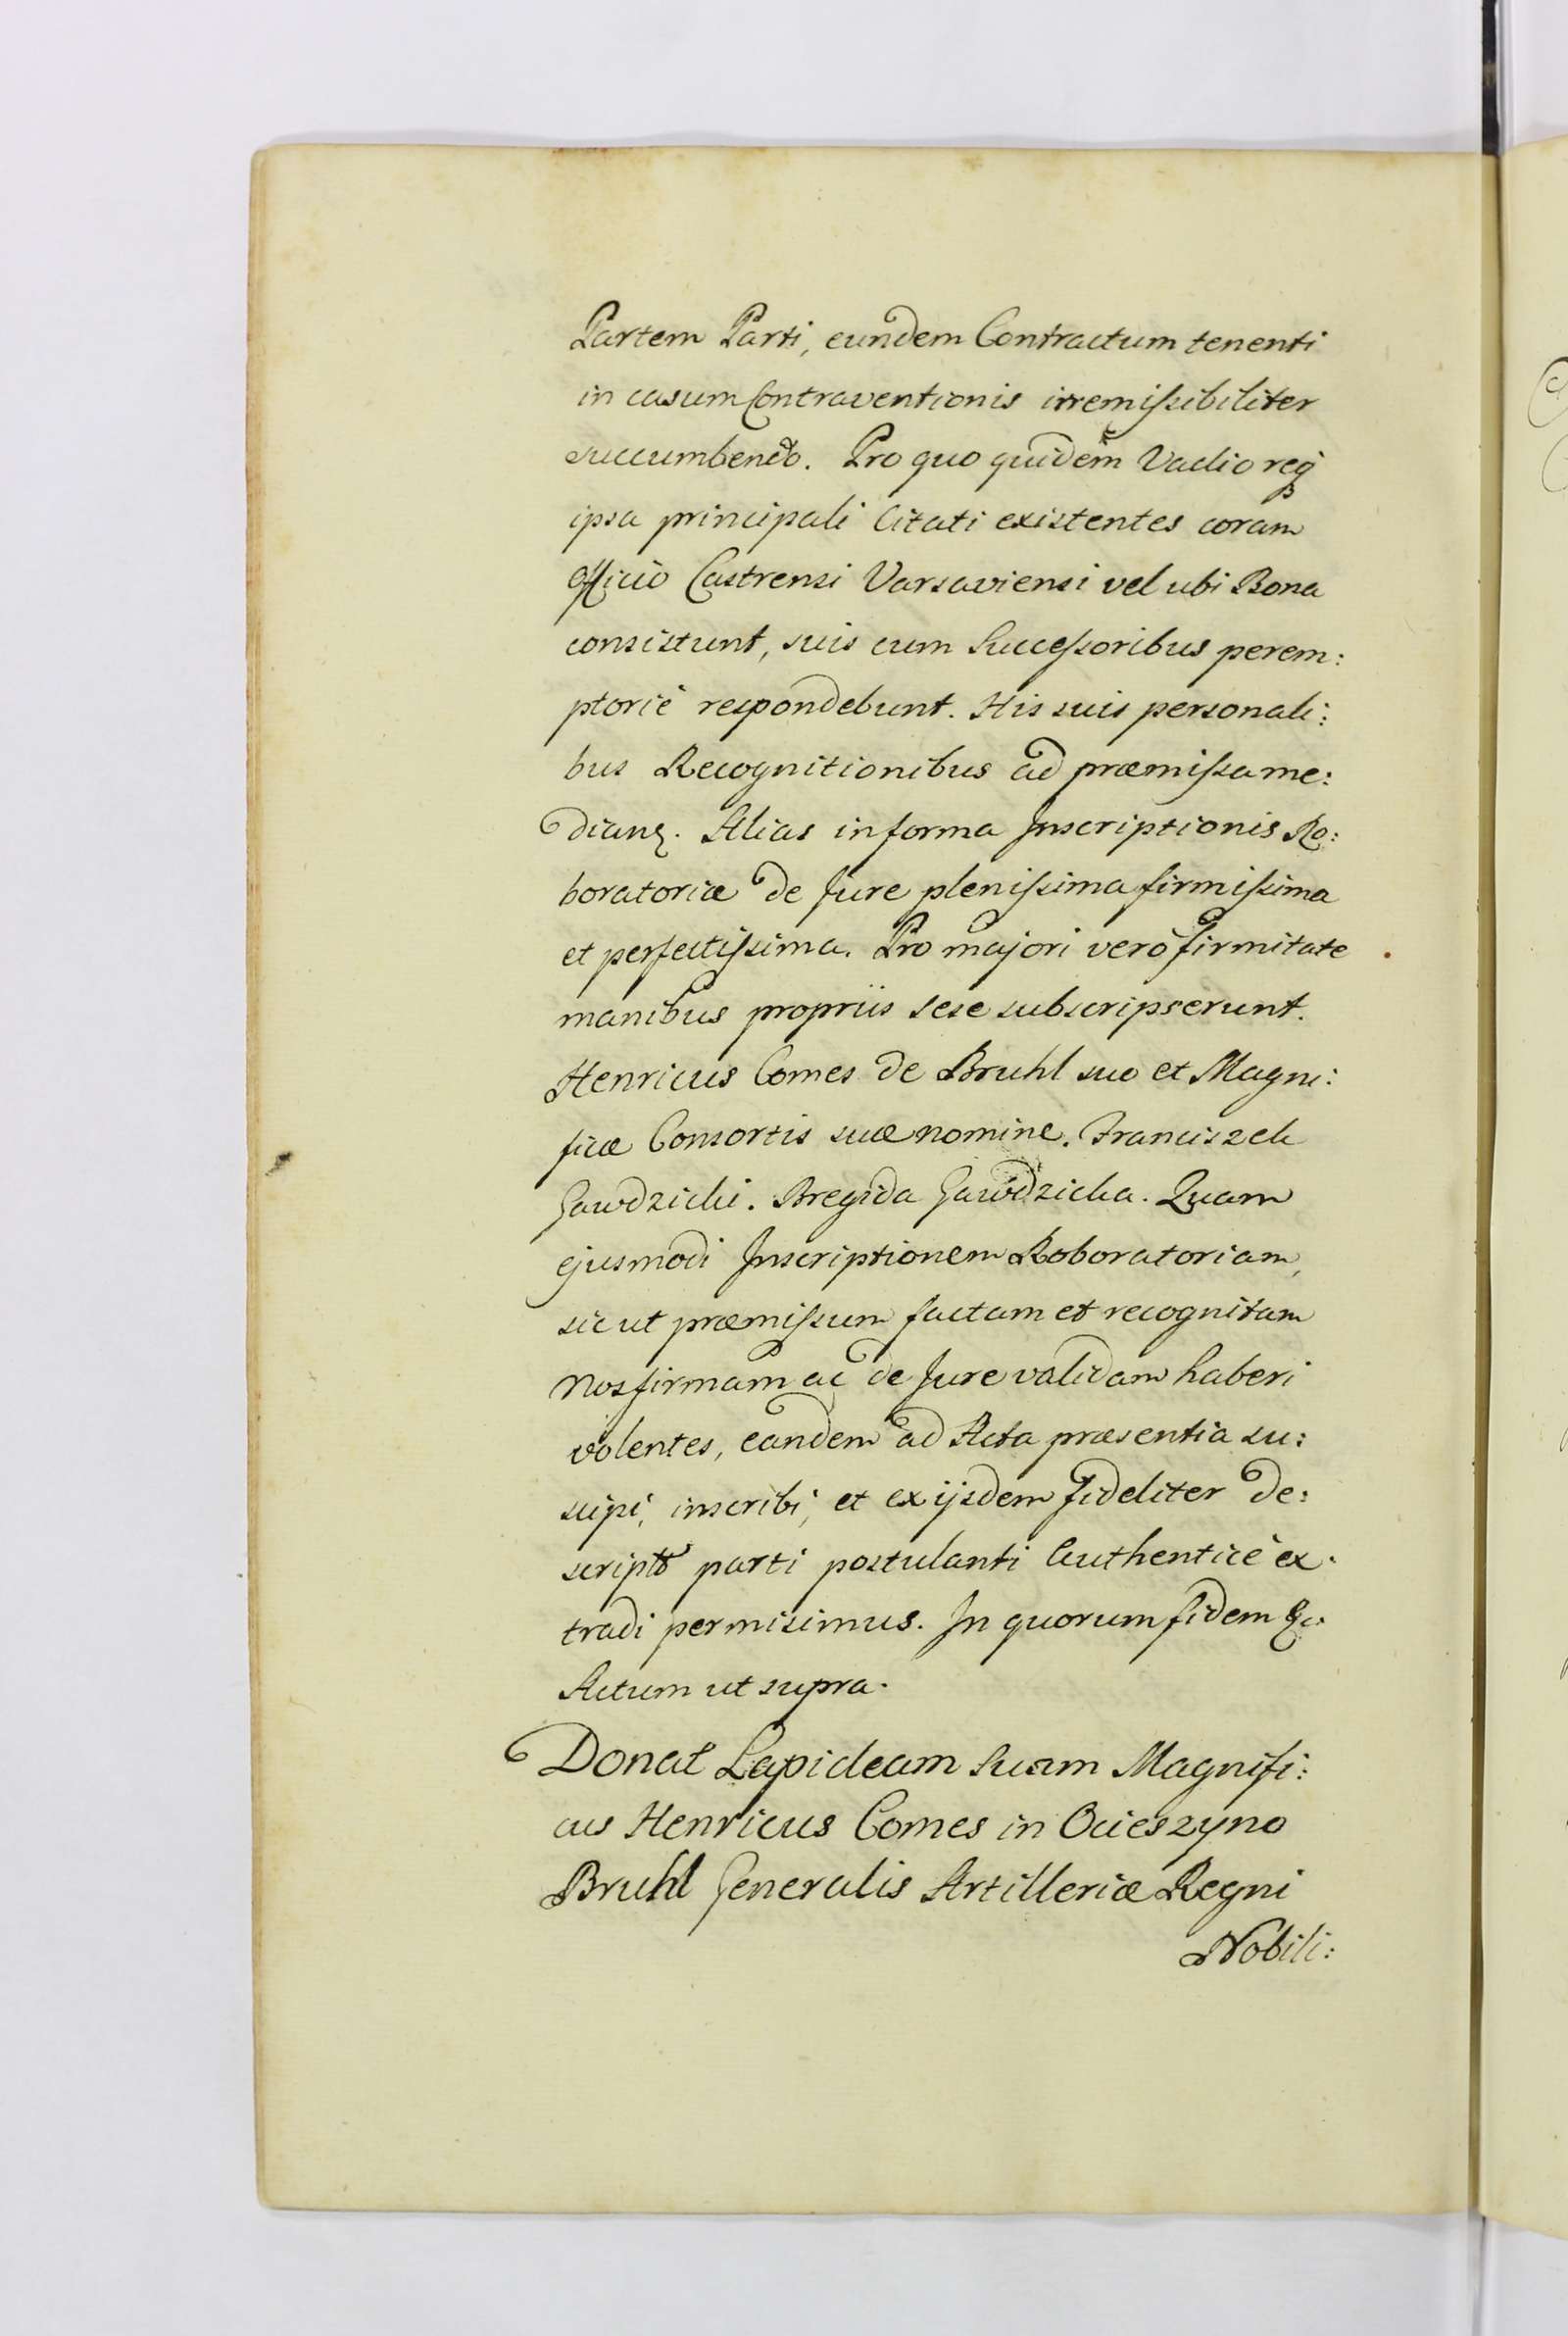 Partem Parti, eundem Contractum tenenti
in casum Contraventionis irremissibiliter
succumbendo. Pro quo quidem Vadio req
ipsa principali Citati existentes coram
Officio Castrensi Varsaviensi vel ubi Bona
consistunt, suis cum Successoribus perem:
ptoriè respondebunt. His suis personali:
bus Recognitionibus ad præmissa me:
dian. Alias in forma Inscriptionis Ro:
boratoriæ de Jure plenissima firmissima
et perfectissima. Pro majori verò firmitate
manibus propriis sese subscripserunt.
Henricus Comes de Bruhl suo et Magni:
ficæ Consortis suæ nomine. Franciszek
Gawdzicki. Bregida Gawdzicka. Quam
ejusmodi Inscriptionem Roboratoriam,
sic ut præmissum factam et recognitam
Nos firmam ac de Jure validam haberi
volentes, eandem ad Acta præsentia su:
scipi, inscribi, et ex ijsdem fideliter de:
scriptã parti postulanti Authenticè ex.
tradi permisimus. In quorum fidem &c.
Actum ut supra.
Donat Lapideam Suam Magnifi:
cus Henricus Comes in Ocieszyno
Bruhl Generalis Artilleriæ Regni
Nobili: